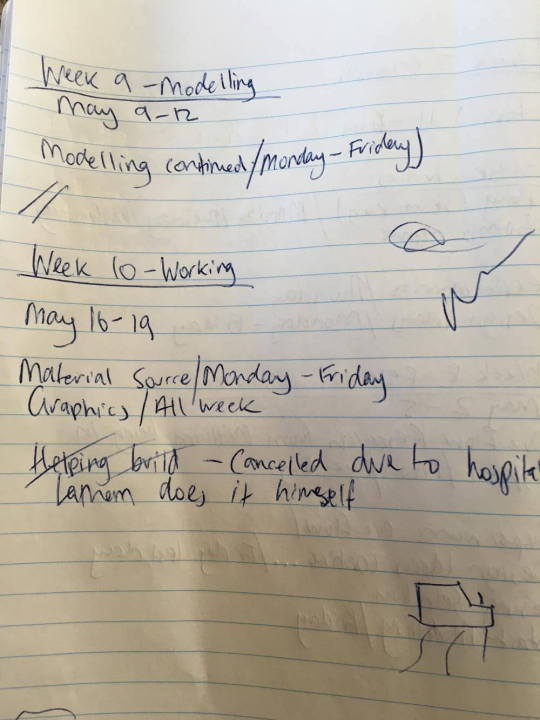 Week 9 - Modelling
May 9-12
Modelling continued/Monday - Friday)
Week 10 - Working
May 16-19
Material Source/Monday - Friday
Graphics/All week
Helping build - Cancelled due to hospital
does it himself